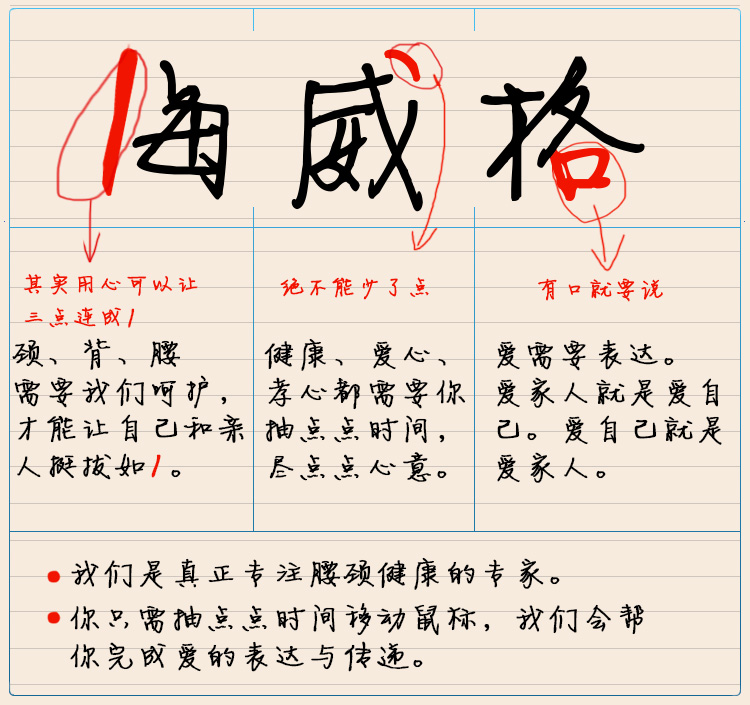 海威格
其实用心可以让
三点连成1
颈、背、腰
需要我们呵护，
才能让自己和亲
人挺拔如1。
绝不能少了点
健康、爱心、
孝心都需要你
抽点点时间，
尽点点心意。
有口就要说
爱需要表达。
爱家人就是爱自
己。爱自己就是
爱家人。
我们是真正专注腰颈健康的专家。
你只需抽点点时间移动鼠标，我们会帮
你完成爱的表达与传递。